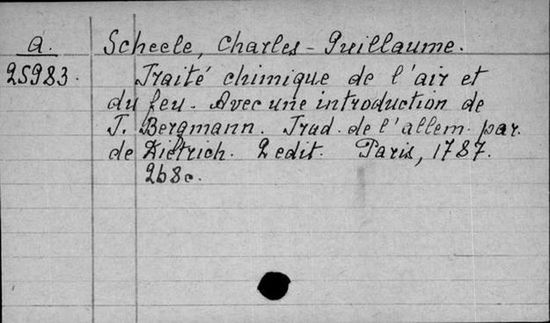 a. Scheele, Charles-Guillaume.
25983. Traité chimique de l'air et
du feu. Avec une introduction de
T. Bergmann. Trad. de l'allem. par.
de Dietrich. 2 edit. Paris, 1787.
268c.